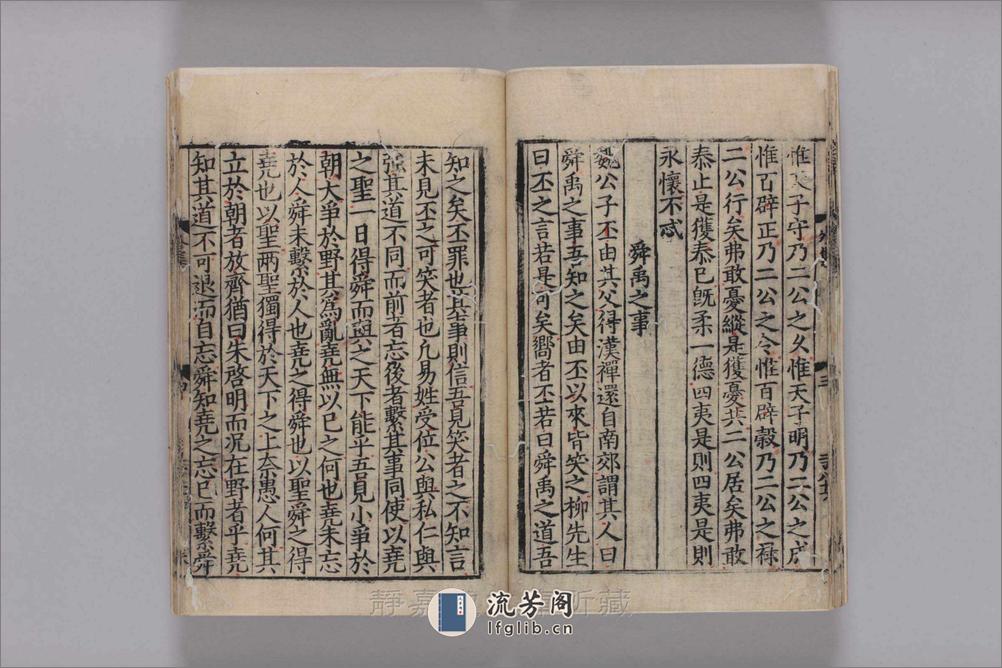 惟天子守乃二公之久惟天子明乃二公之成
惟百辟正乃二公之令惟百辟榖乃二公之祿
二公行矣弗敢憂縱是獲憂共二公居矣弗敢
泰止是獲泰已旣柔一德四夷是則四夷是則
永懷不忒
舜禹之事
魏公子丕由其父得漢禪還自南郊謂其人曰
舜禹之事吾知之矣由丕以來皆笑之柳先生
曰丕之言若是可矣嚮者丕若曰舜禹之道吾
知之矣丕罪也其事則信吾見笑者之不知言
未見丕之可笑者也凡易姓受位公與私仁與
強其道不同而前者忘後者繫其事同使以堯
之聖一日得舜而與之天下能乎吾見小爭於
朝大爭於野其爲亂堯無以已之何也堯未忘
於人舜未繫於人也堯之得舜也以聖舜之得
堯也以聖兩聖獨得於天下之上奈愚人何其
立於朝者放齊猶曰朱啓明而況在野者乎堯
知其道不可退而自忘舜知堯之忘已而繫舜
三
靜嘉 所藏
流芳阁
lfglib.cn